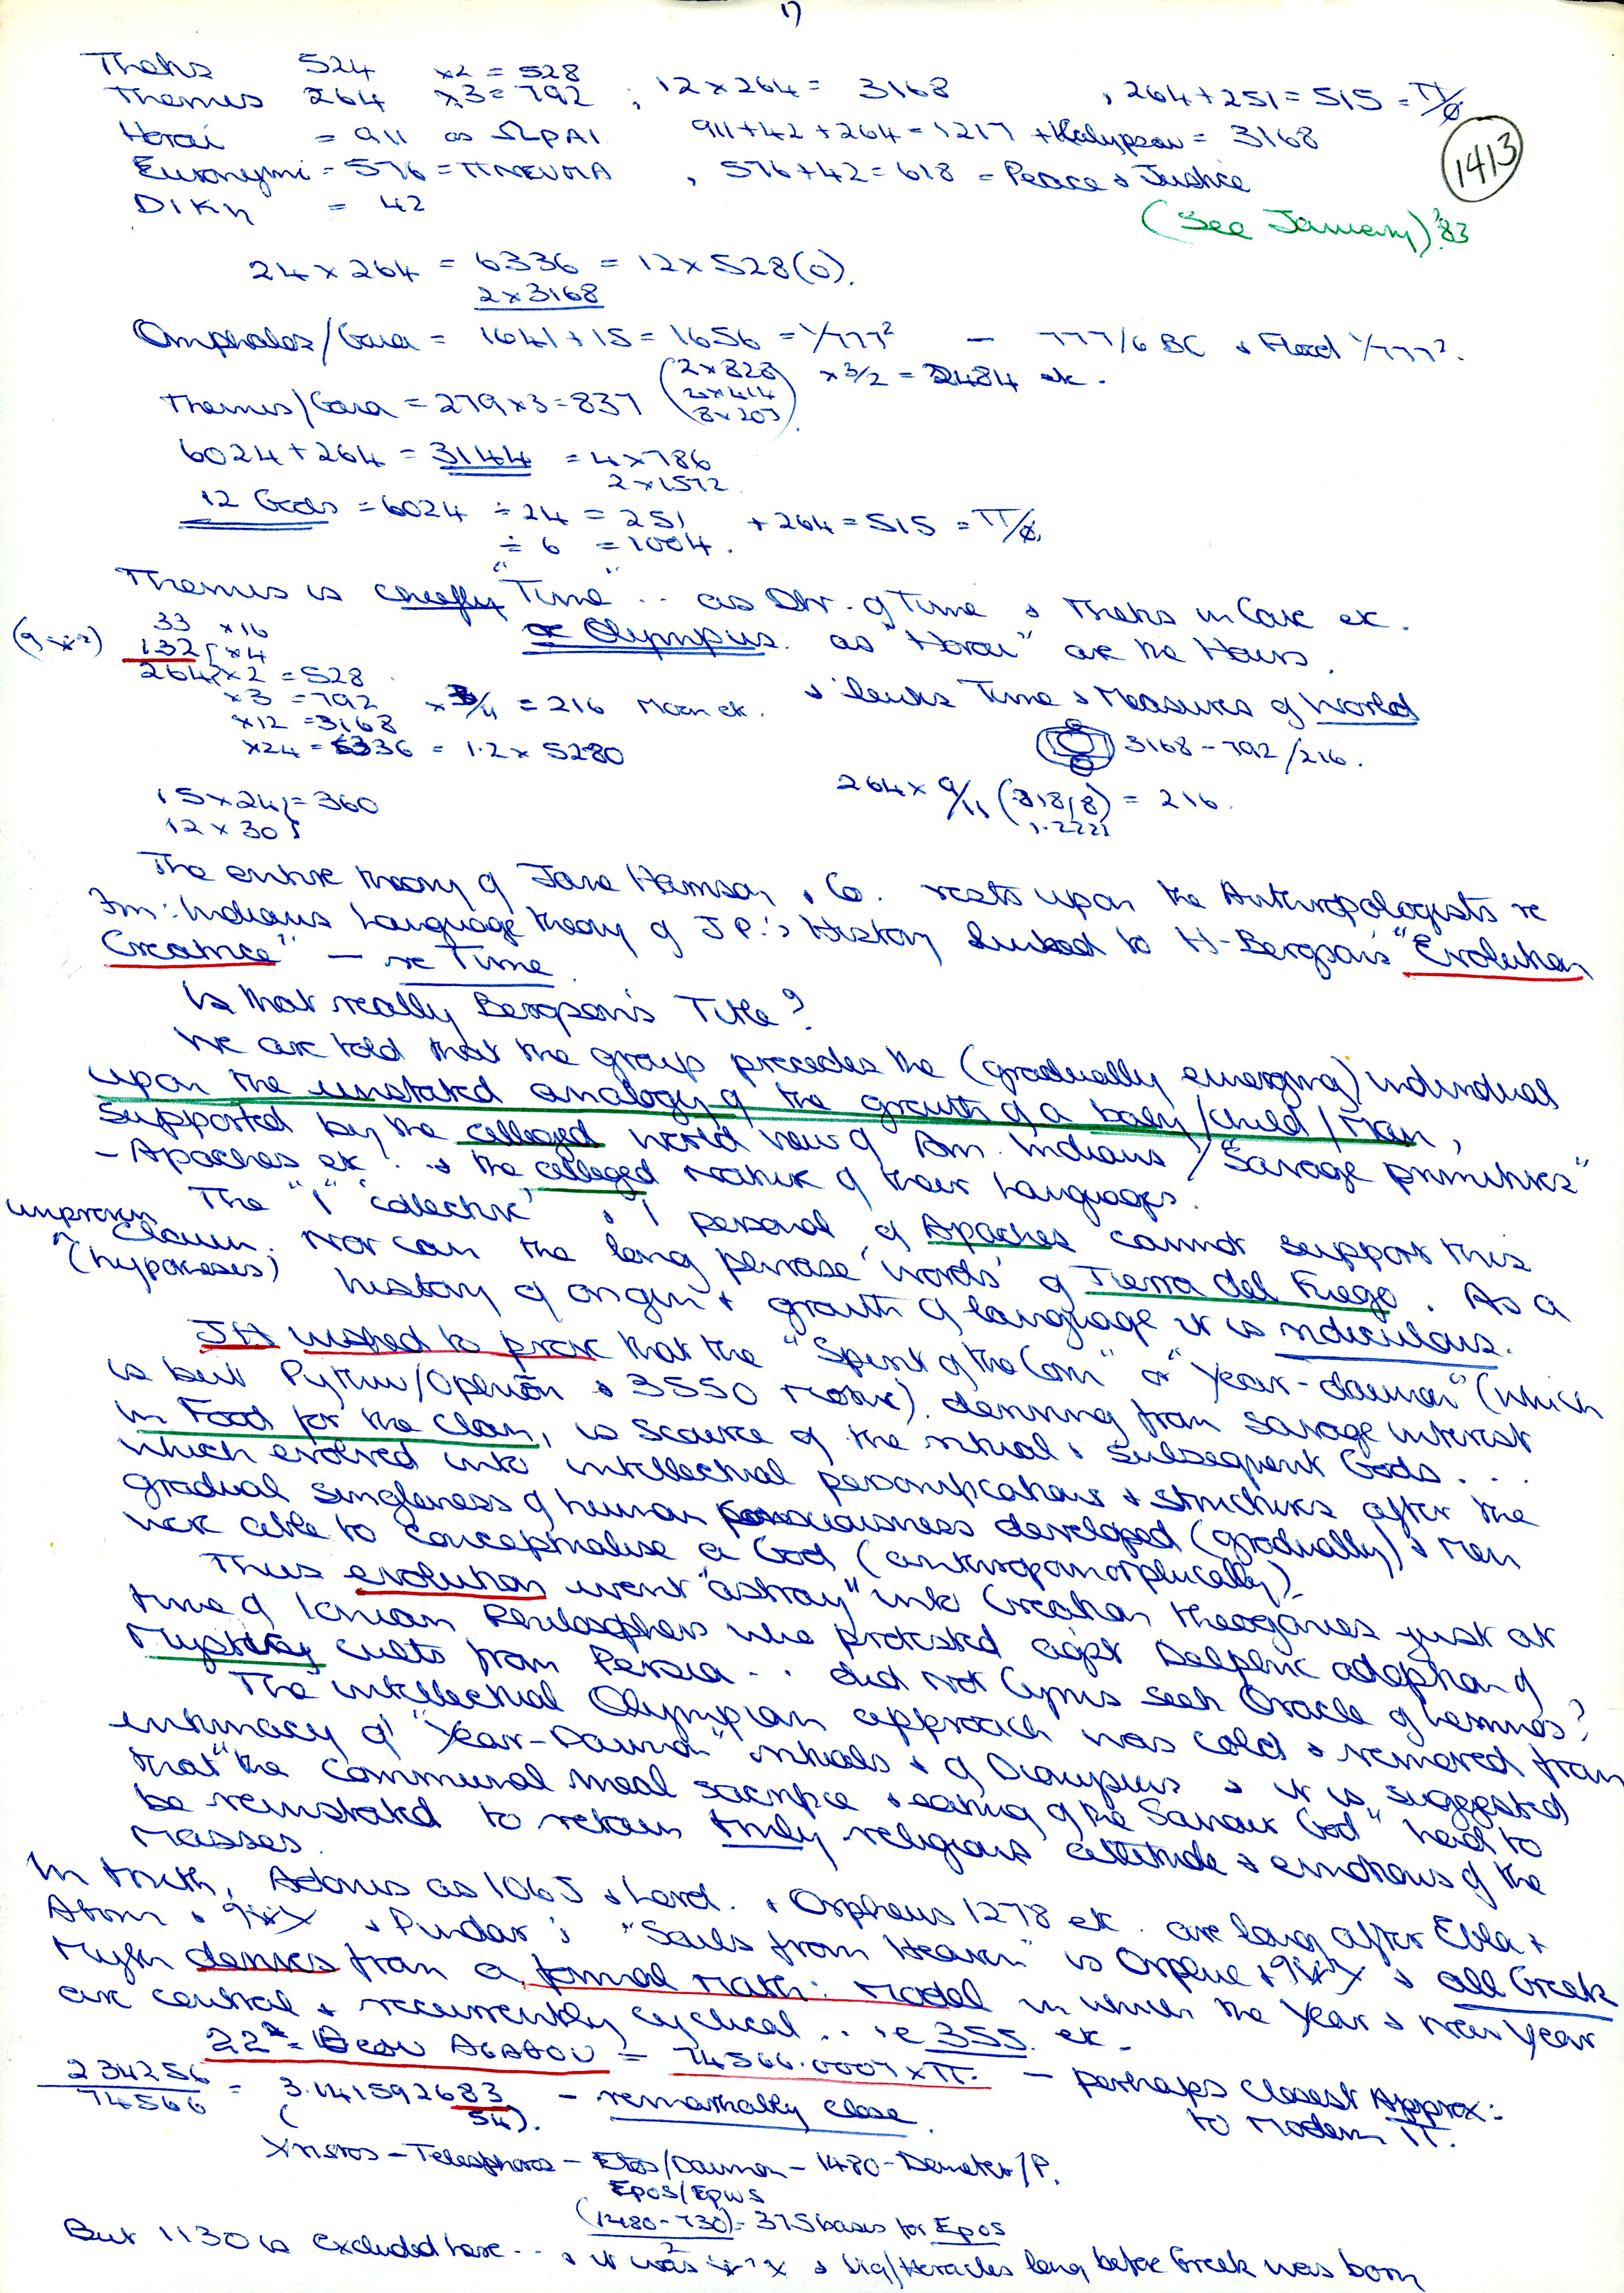 17
Thetis 524 x2 = 528
Themis 264 x3 = 792 ; 12 x 264 = 3168 , 264 + 251 = 515 = π/φ
Horai = 911 as ΩPAI 911 + 42 + 264 = 1217 + Kalypsou = 3168
1413
Euronymi = 576 = ΠNEUMA , 576 + 42 = 618 = Peace & Justice
DIKη = 42
(See January) '83
24 x 264 = 6336 = 12 x 528(0).
2 x 3168
Omphalos/Gaia = 1641 + 15 = 1656 = 1/777² — 777/6 BC & Flood 1/777².
(2x828 x 3/2 = 2484 etc.
Themis/Gaia = 279 x 3 = 837 2x414
8x207)
6024 + 264 = 3144 = 4 x 786
2 x 1572
12 Gods = 6024 ÷ 24 = 251 + 264 = 515 = π/φ
÷ 6 = 1004.
Themis is chiefly "Time" .. as Dtr. of Time & Thetis in Cave etc.
33 x16 or Olympus. as "Horai" are the Hours.
132 x4
264 x2 = 528
x3 = 792 x 3/11 = 216 Moon etc. & links Time & Measures of World
x12 = 3168
x24 = 6336 = 1.2 x 5280 3168 - 792/216.
15 x 24 = 360 264 x 9/11 (818/8) = 216.
12 x 30 1.2222
The entire theory of Jane Harrison & Co. rests upon the Anthropologists re
Am: Indians language theory of J P.: & History linked to H-Bergson's "Evolution
Creatrice" — re Time.
Is that really Bergson's Title?
We are told that the group precedes the (gradually emerging) individual
upon the unstated analogy of the growth of a body/child/Man,
supported by the alleged world view of Am. Indians / "Savage primitives"
- Apaches etc! .. & the alleged nature of their languages.
The "I" 'collective' & I personal of Apaches cannot support this
unproven claim. Nor can the long phrase 'words' of Tierra del Fuego. As a
(hypotheses) history of origin & growth of language it is ridiculous.
JH wished to prove that the "Spirit of the Corn" or "Year-daimon" (which
is but Python/Ophion & 3550 Motive). deriving from savage interest
in Food for the Clan, is source of the ritual & subsequent Gods...
which evolved into intellectual personifications & structures after the
gradual singleness of human consciousness developed (gradually) & Men
were able to conceptualise a God (anthropomorphically)
Thus evolution went "astray" into Creation theogonies just at
time of Ionian Philosophers who protested agst Delphic adoption of
Mystery cults from Persia .. did not Cyrus seek Oracle of
The intellectual Olympian approach was cold & removed from
intimacy of "Year-Daimon" rituals & of Dionysus & it is suggested
that "the communal meal sacrifice & eating of the Saviour God" had to
be reinstated to retain truly religious attitude & emotions of the
Masses.
In truth, Adonis as 1065 & Lord. & Orpheus 1278 etc. are long after Ebla &
Atom & & Pindar's "Souls from Heaven" is Orphic & & all Greek
Myth derives from a formal Math: Model in which the Year & New Year
are central & recurrently cyclical .. i.e 355. etc.
= Θεου ΑΓΑΘΟU = 74566.0007 x π. — perhaps closest Approx:
234256/74566 = 3.141592683 — remarkably close. to Modern π.
(54).
Xristos - Telesphoros - Etos/Daimon - 1480 - Demeter/P.
Epos/Epws
(1480-730)/2 = 375 bases for Epos
But 1130 is excluded here .. & it was & Heracles long before Greek was born